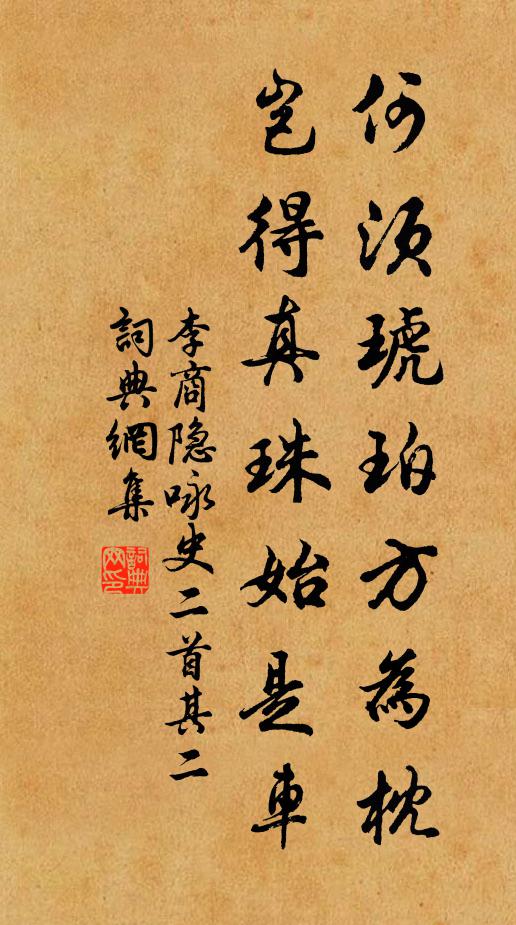 何須琥珀方為枕
豈得真珠始是車
李商隐咏史二首其二
詞典網集
詞典网印